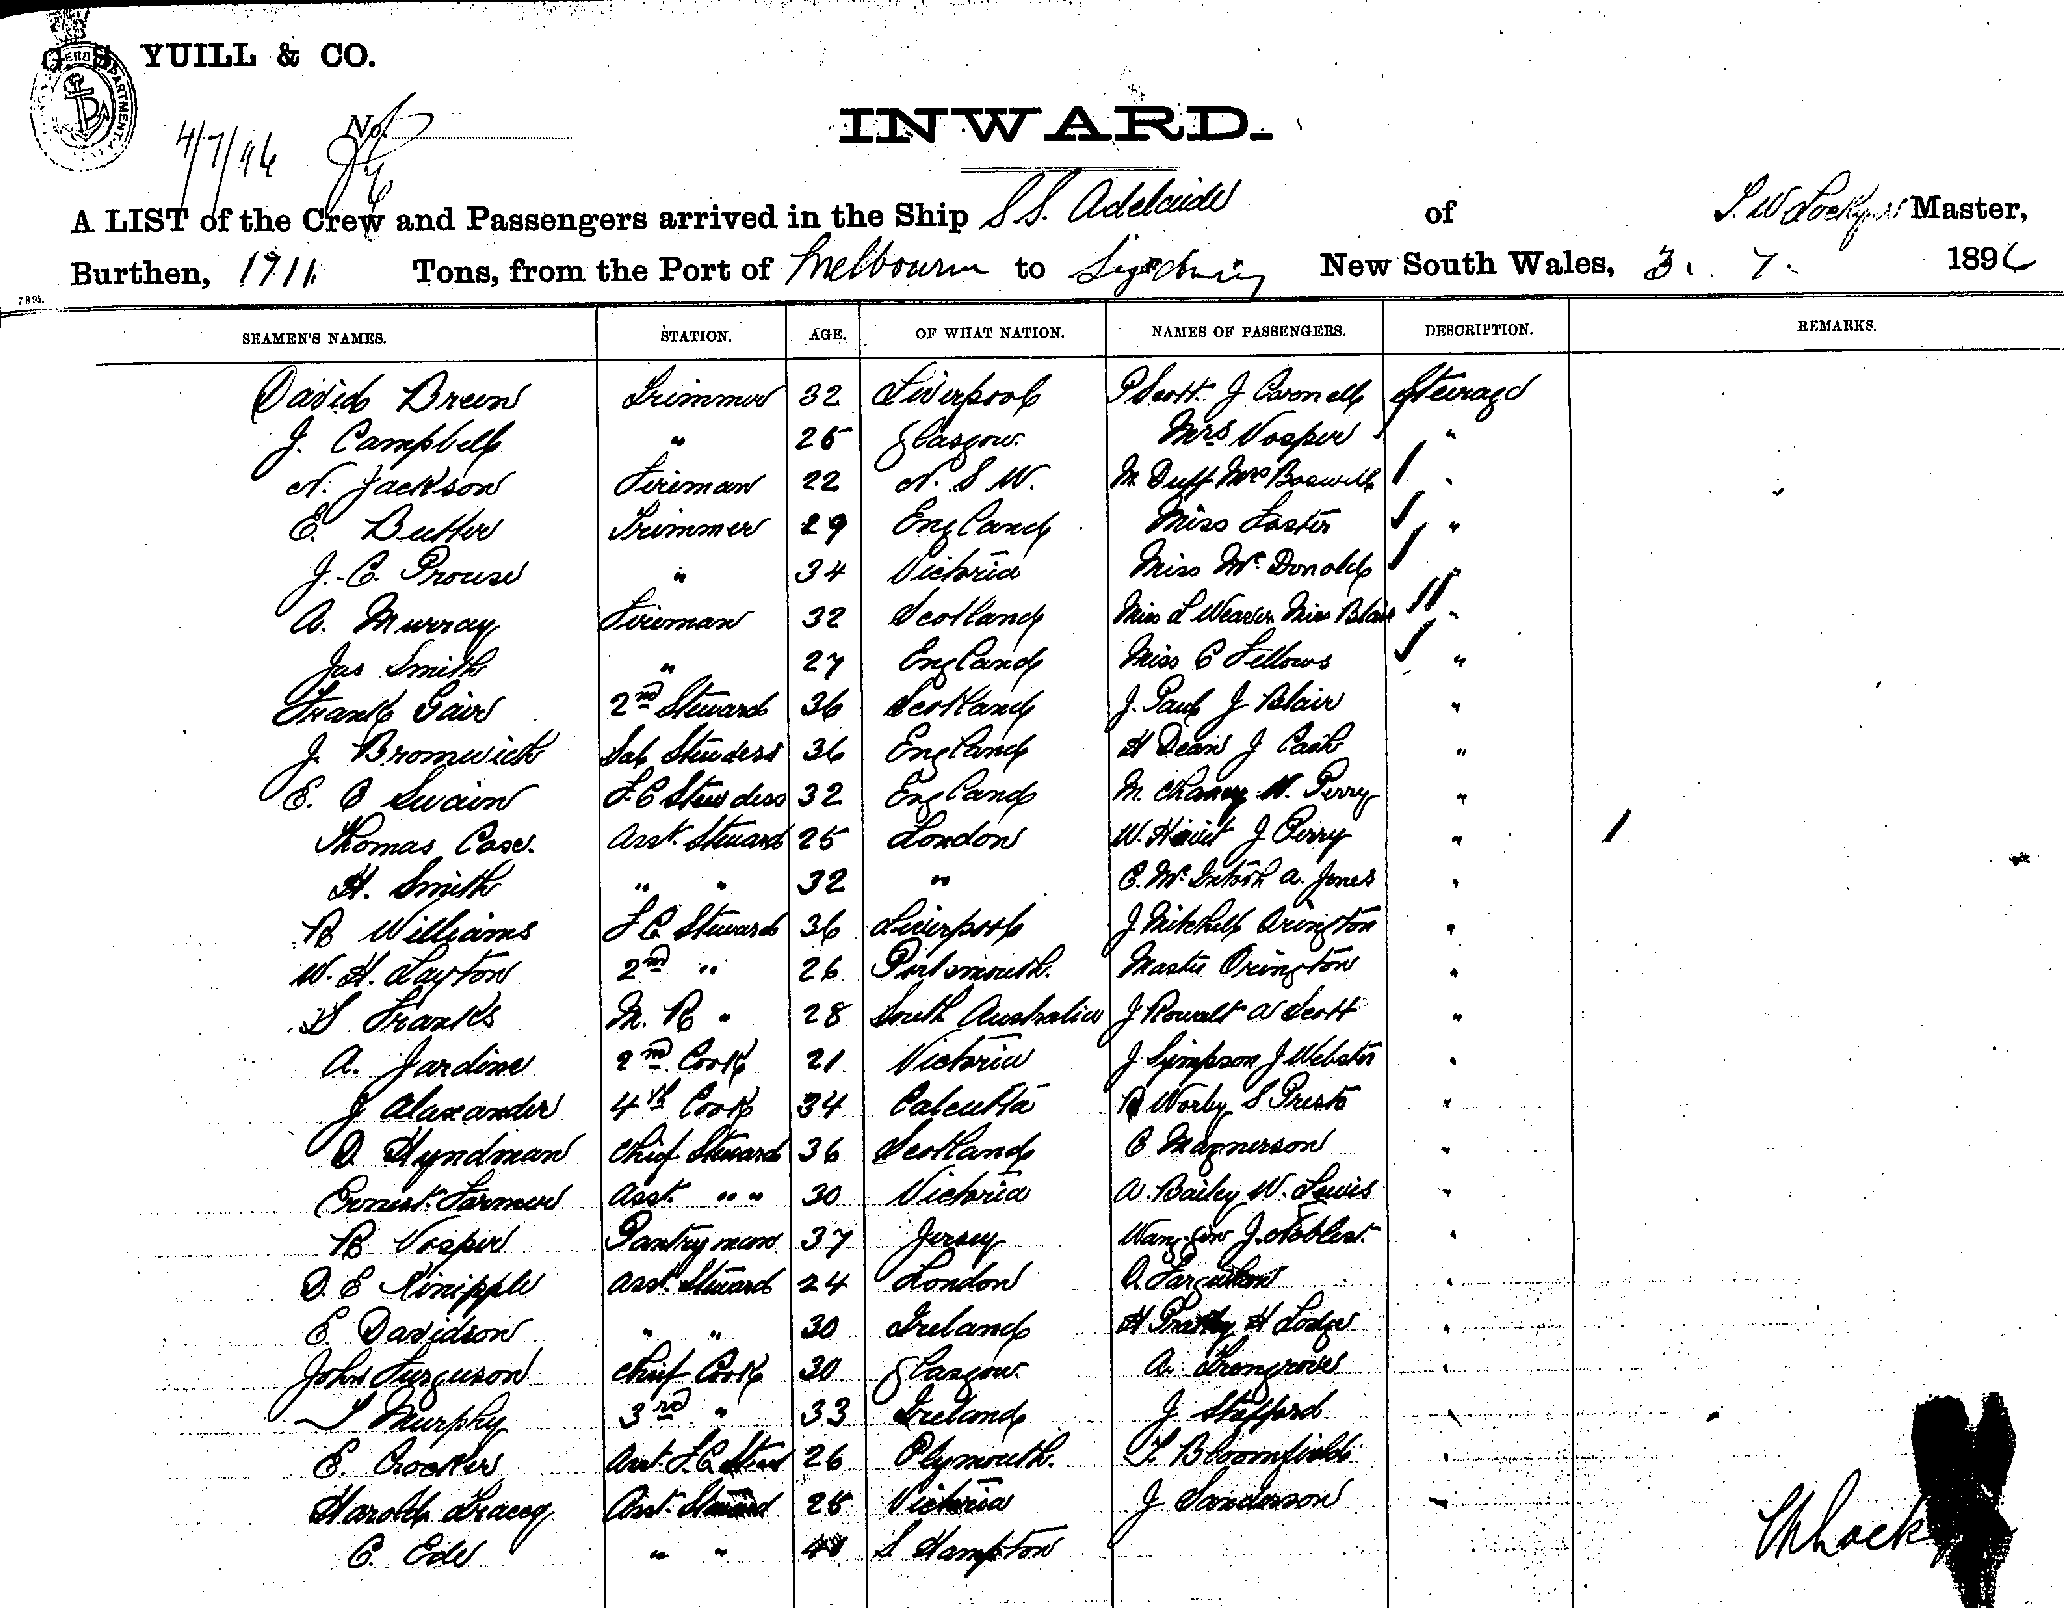 YUILL & CO.
4/7/96 No.
INWARD.
A LIST of the Crew and Passengers arrived in the Ship S.S. Adelaide of Master,
Burthen, 1711 Tons, from the Port of Melbourne to Sydney New South Wales, 3. 7. 1896
SEAMEN'S NAMES. STATION. AGE. OF WHAT NATION. NAMES OF PASSENGERS. DESCRIPTION. REMARKS.
David Breen Trimmer 32 Liverpool P Scott J Caronell Steerage
J. Campbell " 25 Glasgow. Mrs Vosper "
N. Jackson Fireman 22 N. S W. M Duff Mrs Boswell "
E. Butter Trimmer 29 England Miss Foster "
J. C. Prouse " 34 Victoria Miss Mc Donald "
A. Murray Fireman 32 Scotland Miss L Weaver Miss Blair "
Jas Smith " 27 England Miss C Fellows "
Frank Gair 2nd Steward 36 Scotland J. Paul J Blair "
J. Bromwich Sal Stewdess 36 England H Dean J Cash "
E. C Swain F.C Stewdess 32 England M. W. Perry "
Thomas Case. Asst. Steward 25 London W. J Perry "
H. Smith " " 32 " C. McIntosh A. Jones "
R Williams F C Steward 36 Liverpool J Mitchell Orington "
W. H. Layton 2nd " 26 Portsmouth. Master Orington "
S Franks M. R " 28 South Australia J Rowalt W Scott "
A. Jardine 2nd Cook 21 Victoria J Simpson J Webster "
J Alexander 4th Cook 34 Calcutta R Worby S "
D. Hyndman Chief Steward 36 Scotland C Magnerson "
Ernest Farmer Asst. " " 30 Victoria A. Bailey W. Lewis "
R Vosper Pantryman 37 Jersey J. "
D. E Kinipple Asst. Steward 24 London "
E. Davidson " " 30 Ireland H H Lodge "
John Ferguson Chief Cook 30 Glasgow. A. Trengrove "
T Murphy 3rd " 33 Ireland J Stafford "
E. Crocker Asst. F.C. Stew 26 Plymouth. T. Bloomfield "
Harold Tracey Asst. Steward 25 Victoria J Sanderson "
C. Ede " " S Hampton